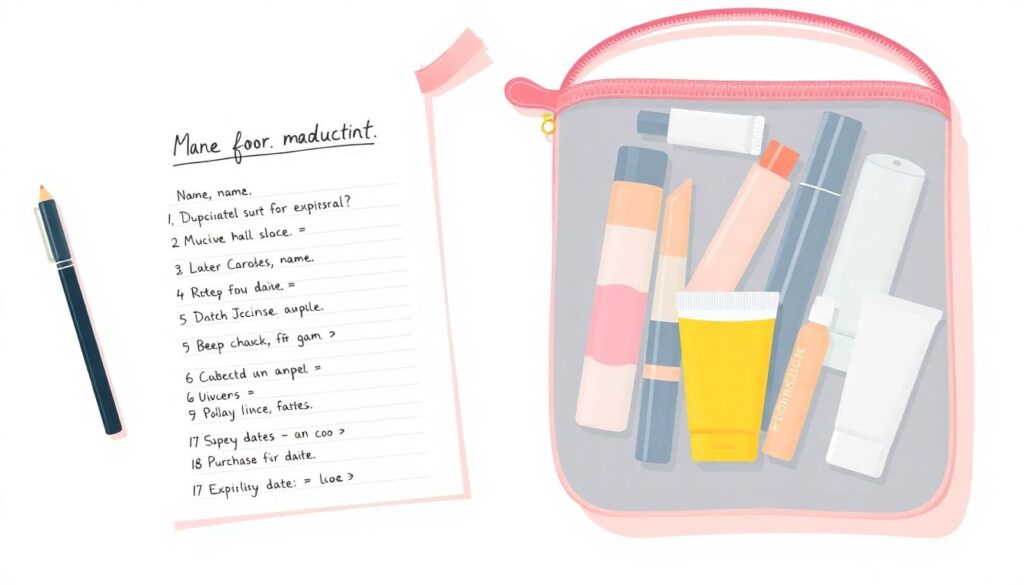 Mane foor. maductint.
Name, name.
1, Dupciatel surt for expisral?
2 Mucive hall sloce. =
3 Later Caroles, name.
4 Rotep fou daite. =
5 Datch Jccinse auplle.
5 Beep chasck, fit gam >
6 Cabectd un anpel =
6 Uivcers =
9 Pollay lince, fattes.
17 Sapey dates - an coo >
18 Purchase fir daite.
17 Expirliy date: = Luoe >